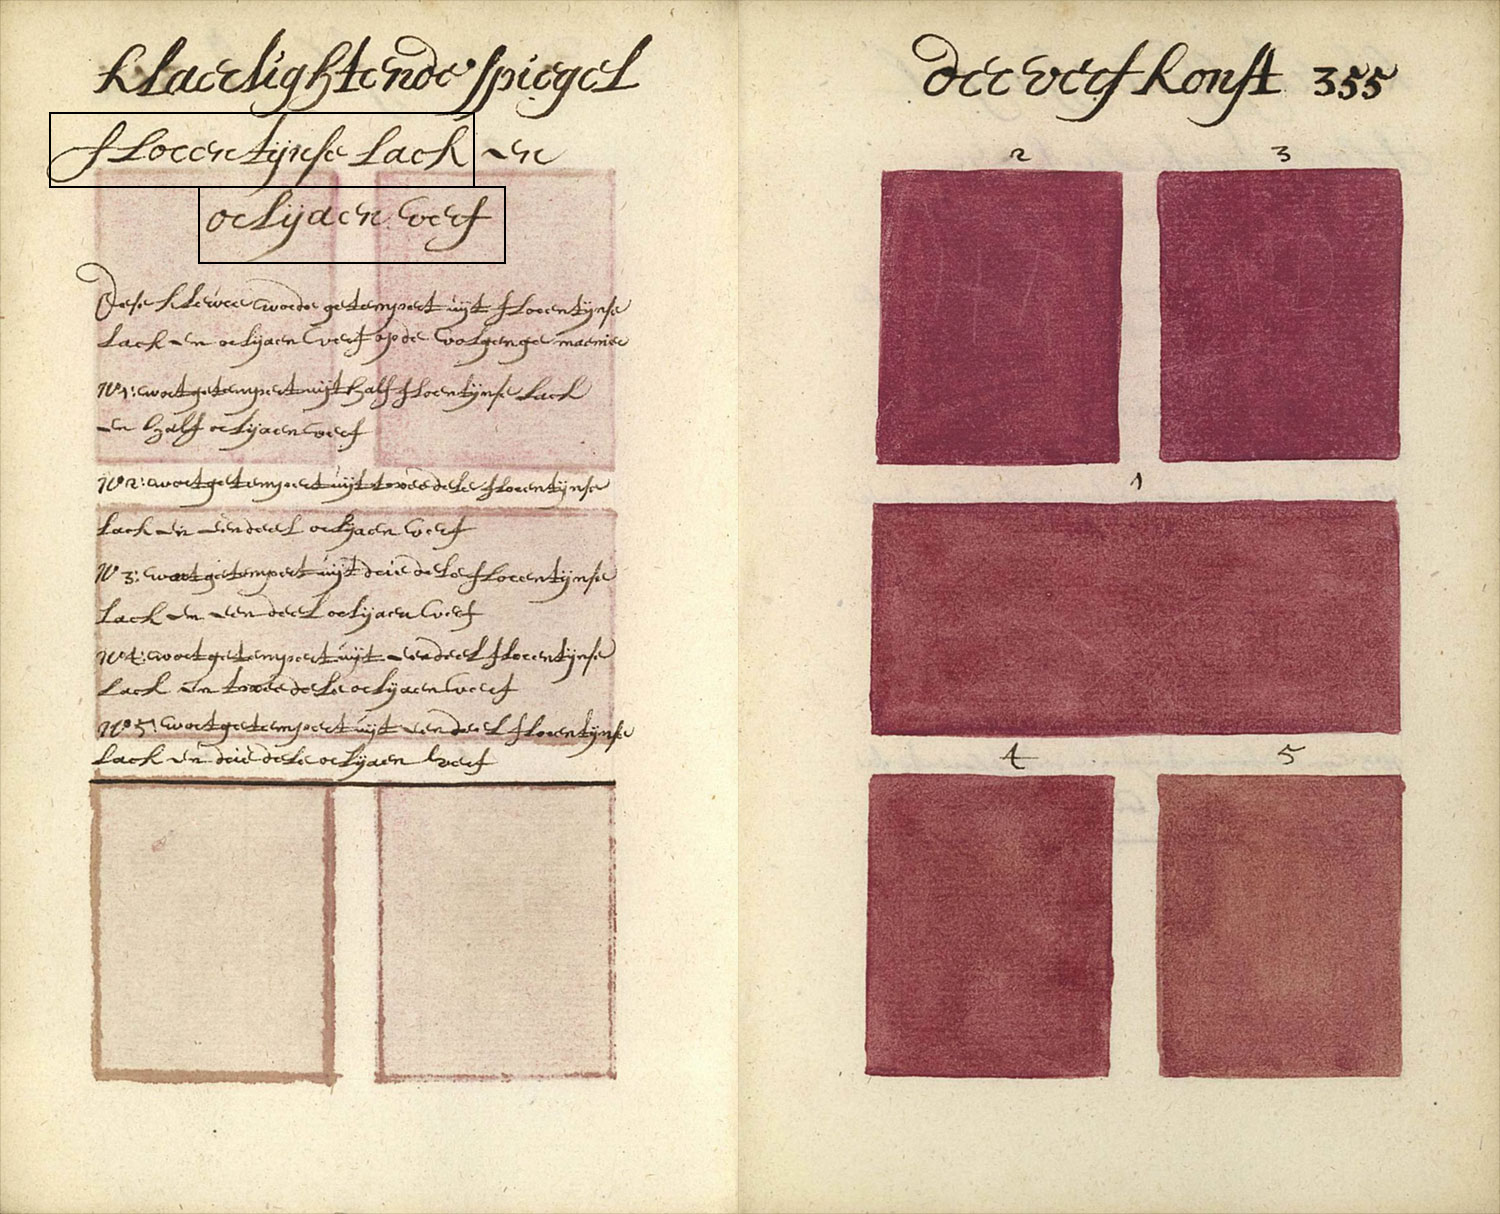 klaerlightende spiegel
florentijnse lack en
orlijaen verf
Dese kleure worde getempert uijt florentijnse
lack en orlijaen verf op de volgenge manier
No 1: wort getempert uijt half florentijnse lack
en half orlijaen verf
No 2: wort getempert uijt twee dele florentijnse
lack en een deel orlijaen verf
No 3: wort getempert uijt drie dele florentijnse
lack en een deel orlijaen verf
No 4: wort getempert uijt een deel florentijnse
lack en twee dele orlijaen verf
No 5: wort getempert uijt een deel florentijnse
lack en drie dele orlijaen verf
der verf konst 355
2 3
1
4 5